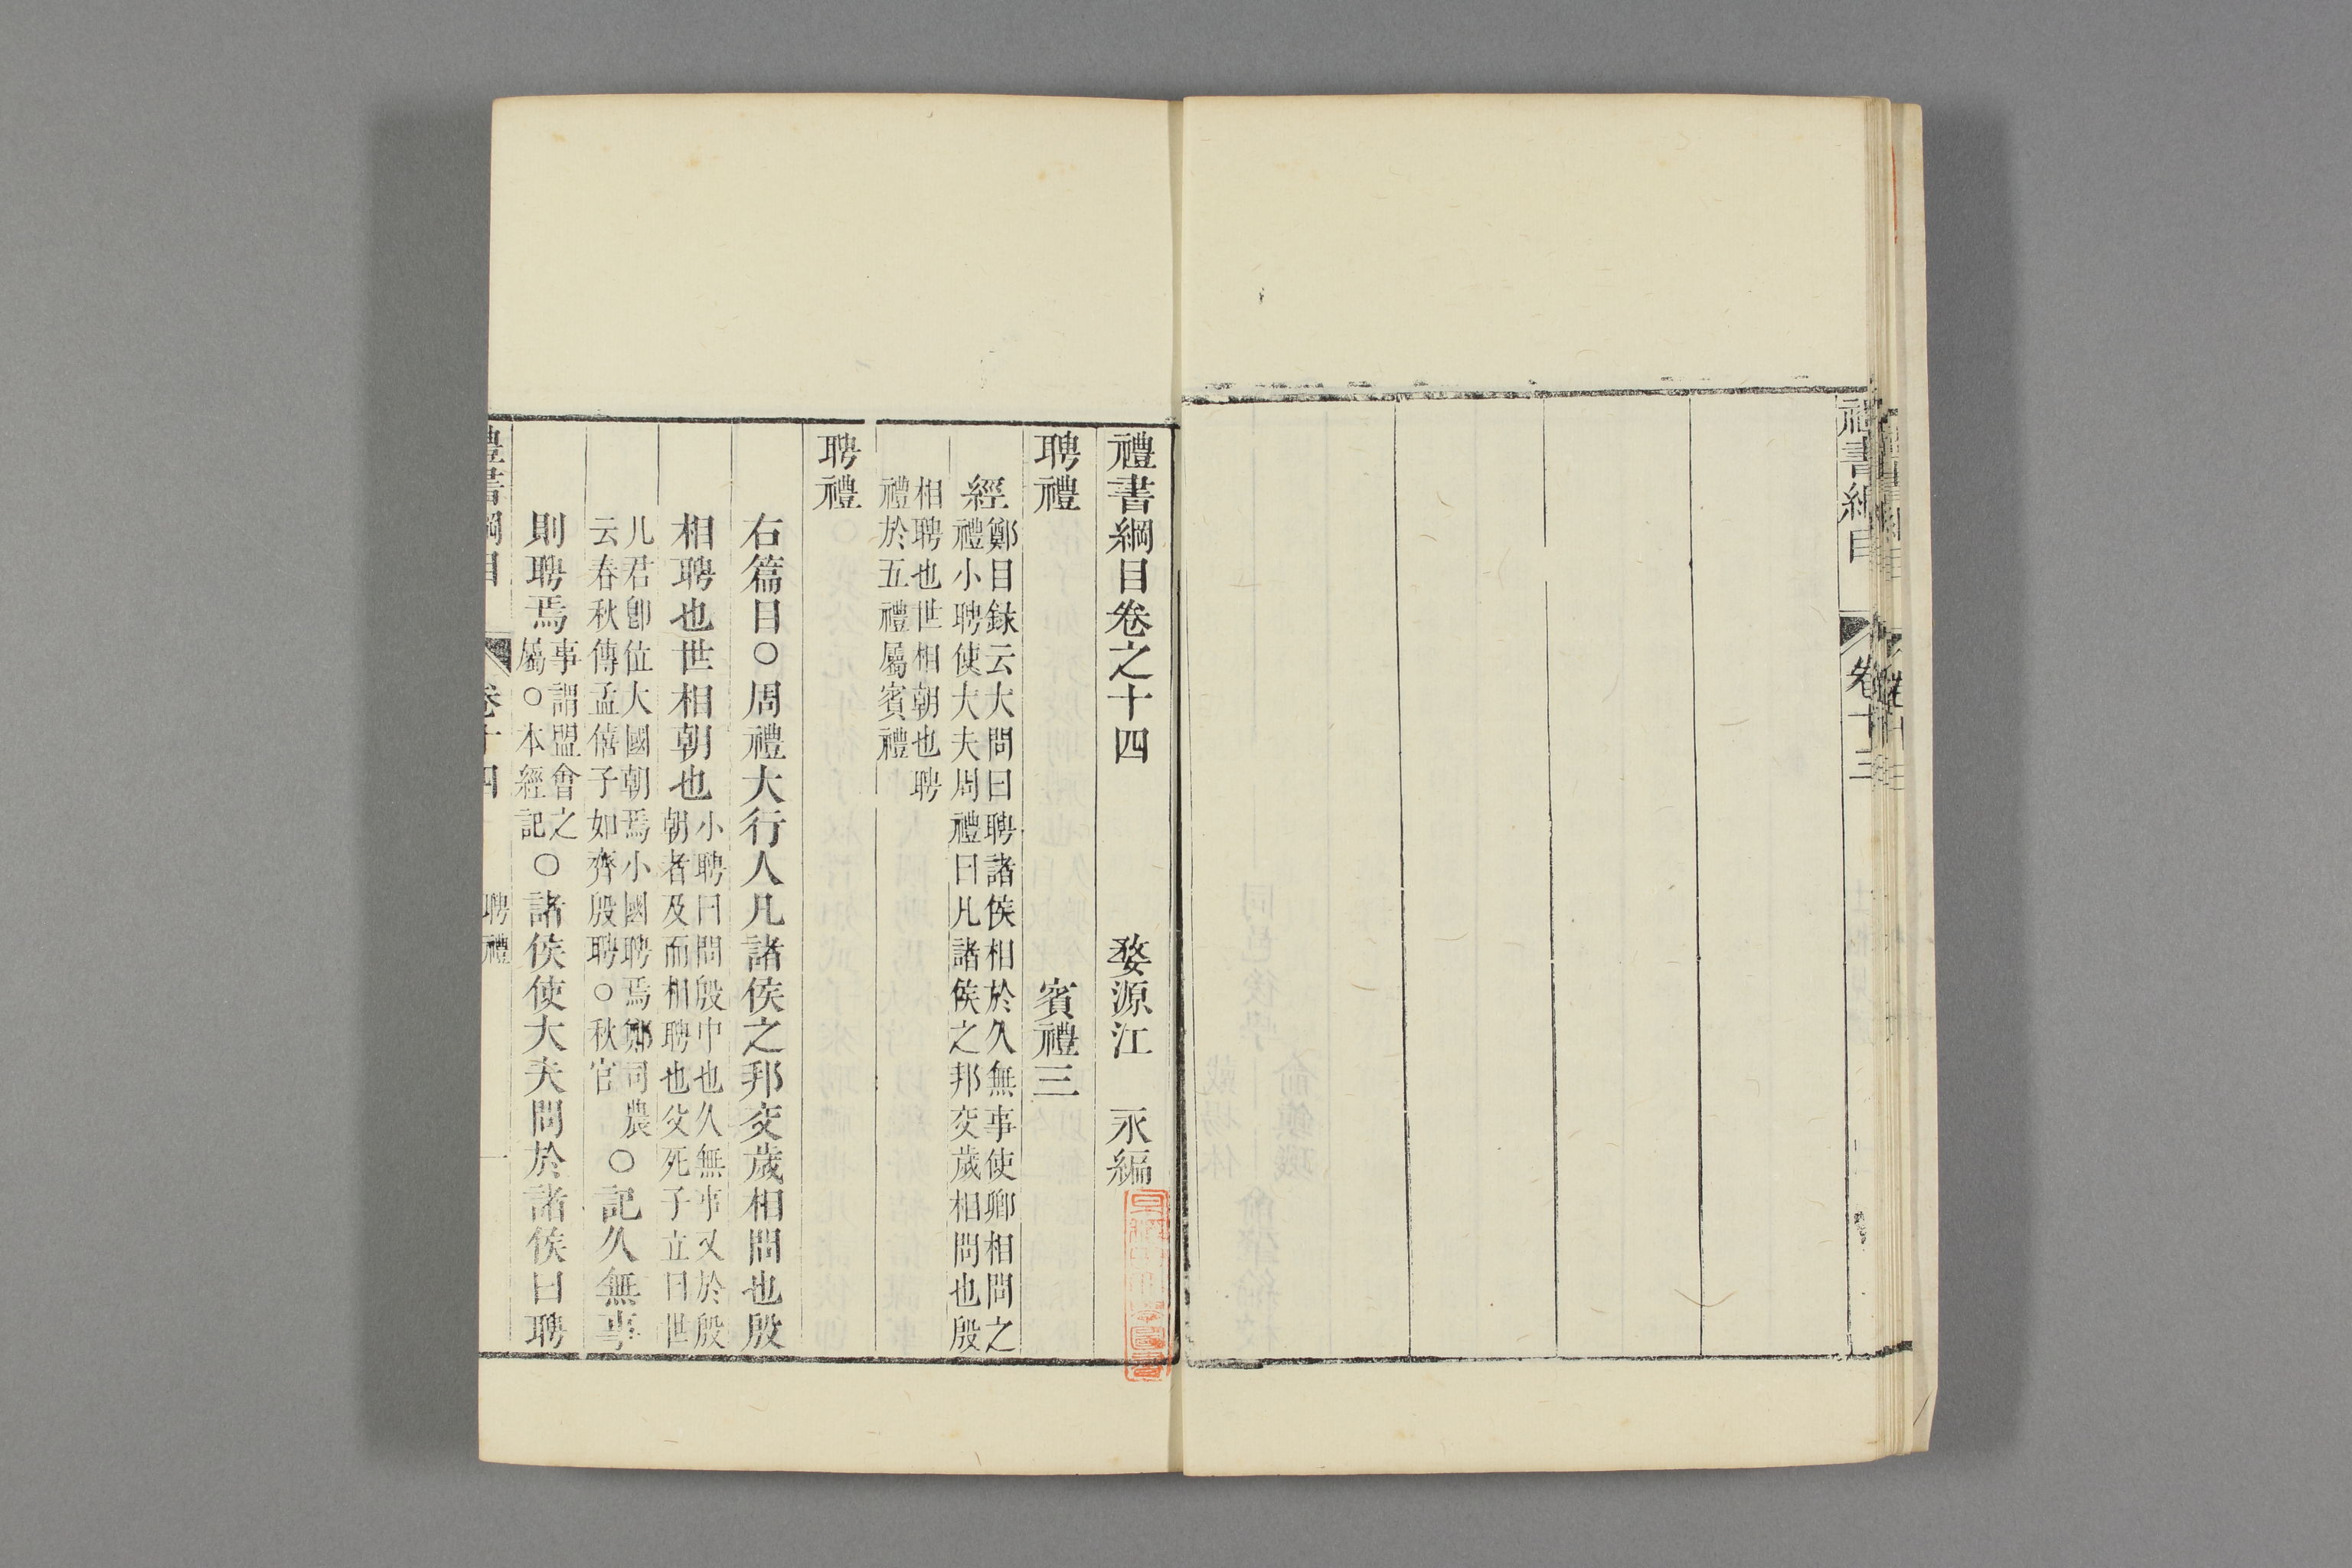 禮書綱目
卷十三
禮書綱目卷之十四 婺源江 永編
聘禮 賓禮三
經鄭目錄云大問曰聘諸侯相於久無事使卿相問之
禮小聘使大夫周禮曰凡諸侯之邦交歲相問也殷
相聘也世相朝也聘
禮於五禮屬賓禮
聘禮
右篇目○周禮大行人凡諸侯之邦交歲相問也殷
相聘也世相朝也小聘曰問殷中也久無事又於殷
朝者及而相聘也父死子立曰世
凡君卽位大國朝焉小國聘焉鄭司農
云春秋傳孟僖子如齊殷聘○秋官○記久無事
則聘焉事謂盟會之
屬○本經記○諸侯使大夫問於諸侯曰聘
禮書綱目 卷十四 聘禮 一